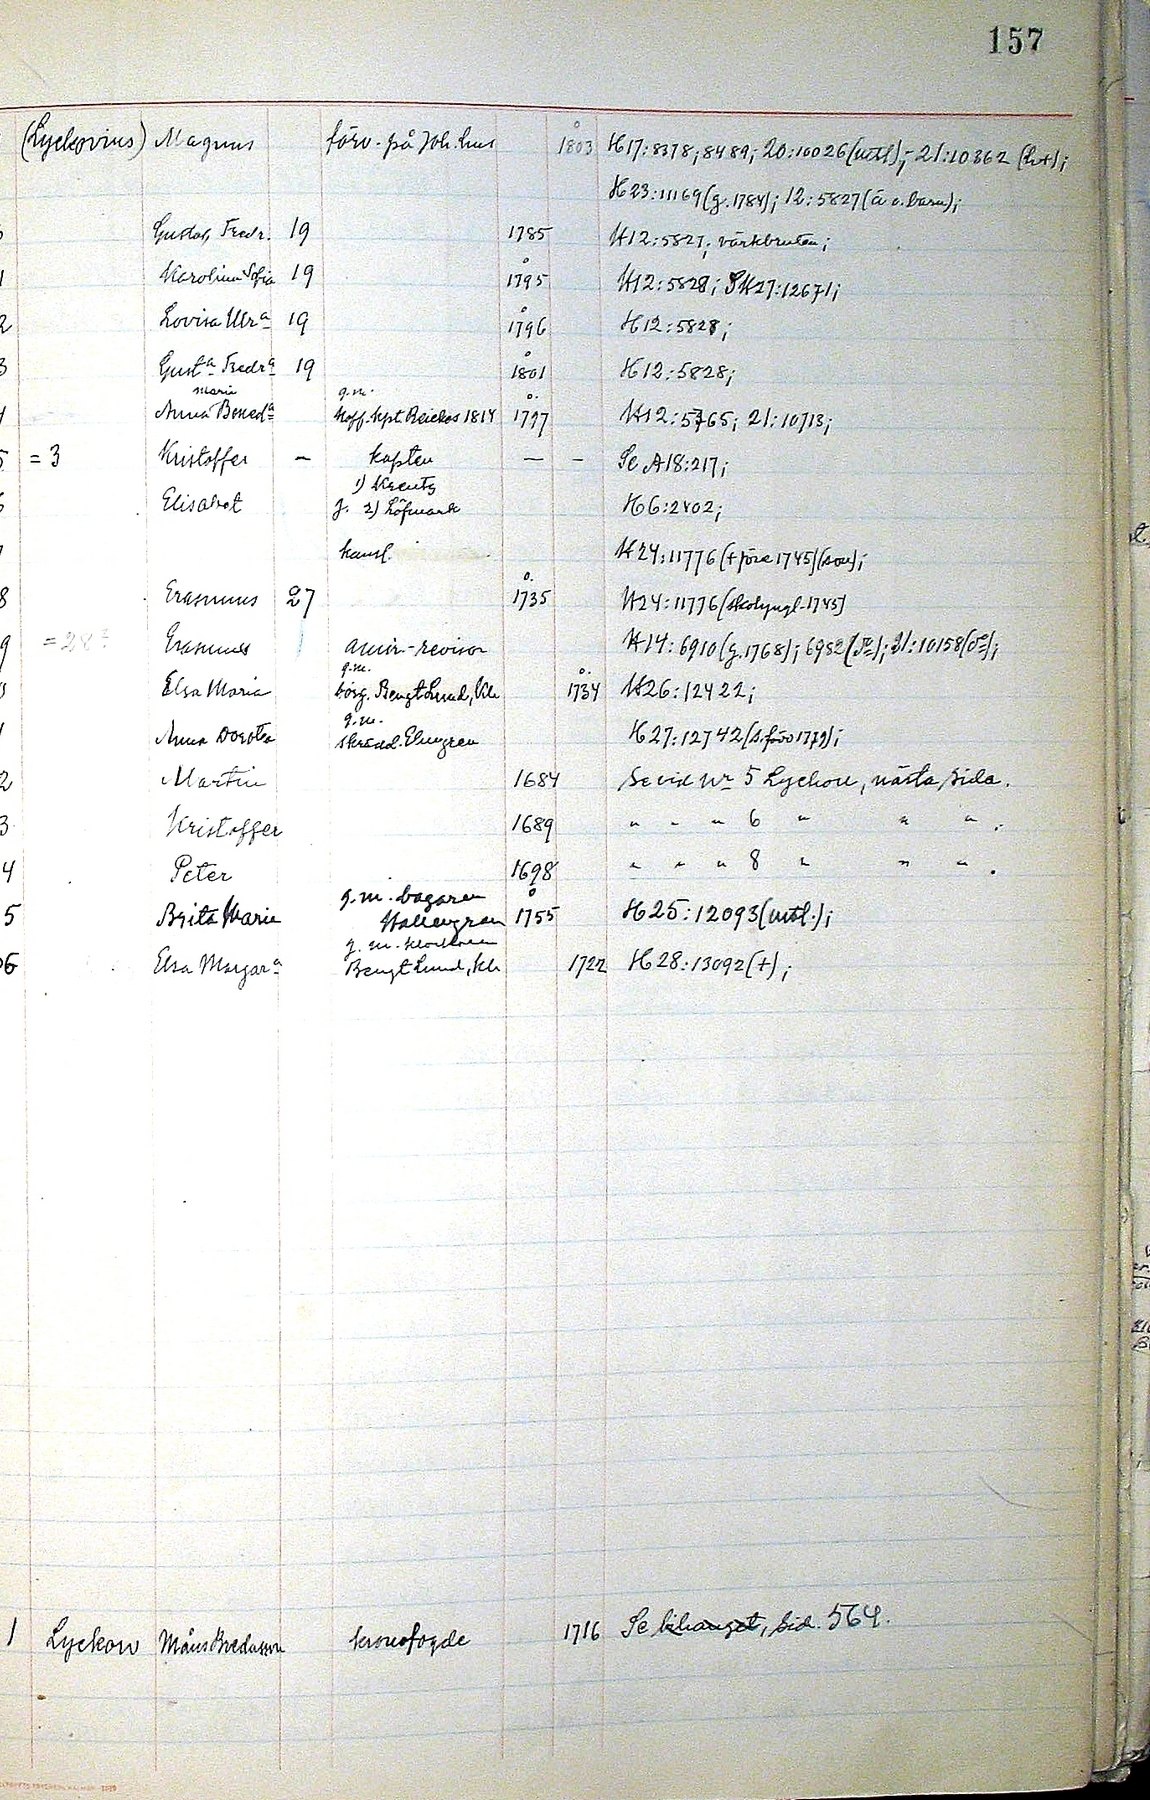 157
(Lyckovius) Magnus förv. på Joh. hus 1803 H17:8378; 8489; 20:10026(mtl); 21:10362 (h+);
H23:11169(g.1784); 12:5827(ä o. barn);
Gustaf Fredr. 19 1785 H12:5827; värkbruten;
1 Karolina Sofia 19 1795 H12:5828; SH27:12671;
2 Lovisa Ulra 19 1796 H12:5828;
3 Gusta Fredra 19 1801 H12:5828;
maria g.m.
Anna Beneda Hoff. kpt. Reickos 1814 1797 H12:5765; 21:10713;
5 = 3 Kristoffer — kapten — — Se A18:217;
1) Kreutz
Elisabet g. 2) Löfmark H6:2402;
kamf. H24:11776(+före 1745)(son);
8 Erasmus 27 1735 H24:11776(skolyngl. 1745)
9 = 28? Erasmus amir.-revisor H14:6910(g.1768); 6982(d:o); 21:10158(d:o);
g.m.
Elsa Maria borg. Bengt Lund, Kla 1734 H26:12422;
g.m.
Anna Dorotea skrädd. Elmgren H27:12742(s.förv 1779);
2 Martin 1684 Se vid Nr 5 Lyckou, nästa sida.
3 Kristoffer 1689 " " " 6 " " " .
4 Peter 1698 " " " 8 " " " .
g.m. bagaren
5 Brita Maria Hallengren 1755 H25:12093(mtl.);
g. m. klockaren
6 Elsa Margara Bengt Lund, Kla 1722 H28:13092(+);
1 Lyckow Måns Bredasson kronofogde 1716 Se bihanget, sid. 564.